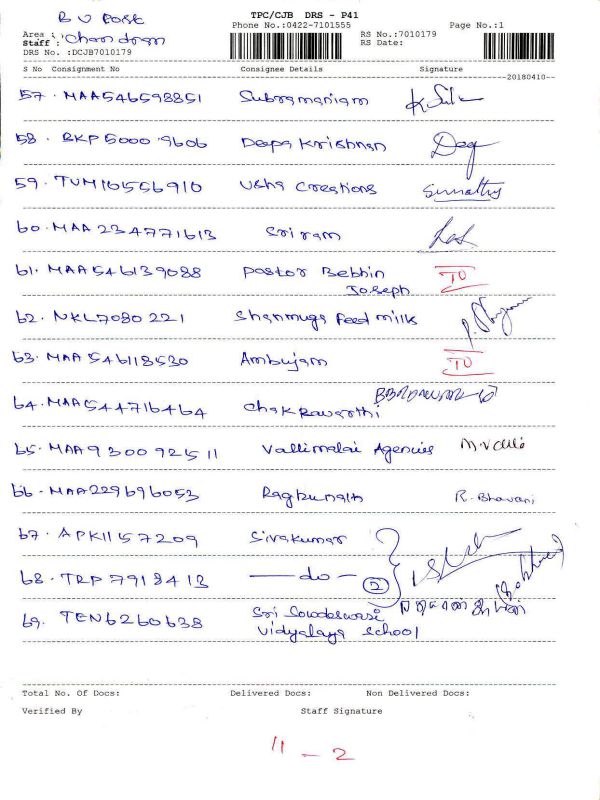 TPC/CJB DRS - P41
Phone No.:0422-7101555
Page No.:1
Area :
Staff : Chandran
DRS No. :DCJB7010179
RS No.:7010179
RS Date:
S No Consignment No Consignee Details Signature
20180410
57. MAA546598851 Subramaniam
58. BKP5000 9606 Deepa Krishnan
59. TUM16556910 Usha Creations Sumathy
60. MAA 234771613 Sri ram
61. MAA546139088 Pastor Bebhin TO
Joseph
62. NKL7080221 Shanmuga Feed Mills
63. MAA 546118530 Ambujam TO
64. MAA544716464 Chakravarthi
65. MAA9300925 11 Vallimalai Agencies
66. MAA229696053 Raghunath R. Bhavani
67. APK1157209 Sivakumar
68. TRP7918413 — do — 2
69. TEN6260638 Sri Sowdeswari
Vidyalaya School
Total No. Of Docs: Delivered Docs: Non Delivered Docs:
Verified By Staff Signature
11 - 2